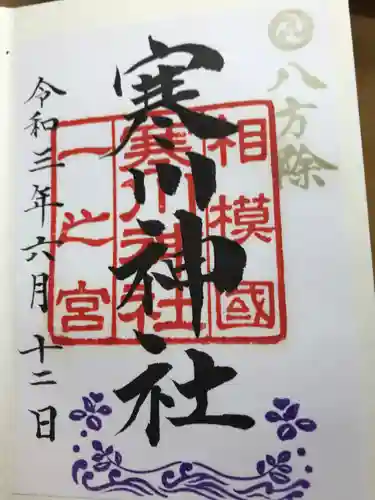 八方除
相模國
寒川神社
一之宮
寒川神社
令和三年六月十二日